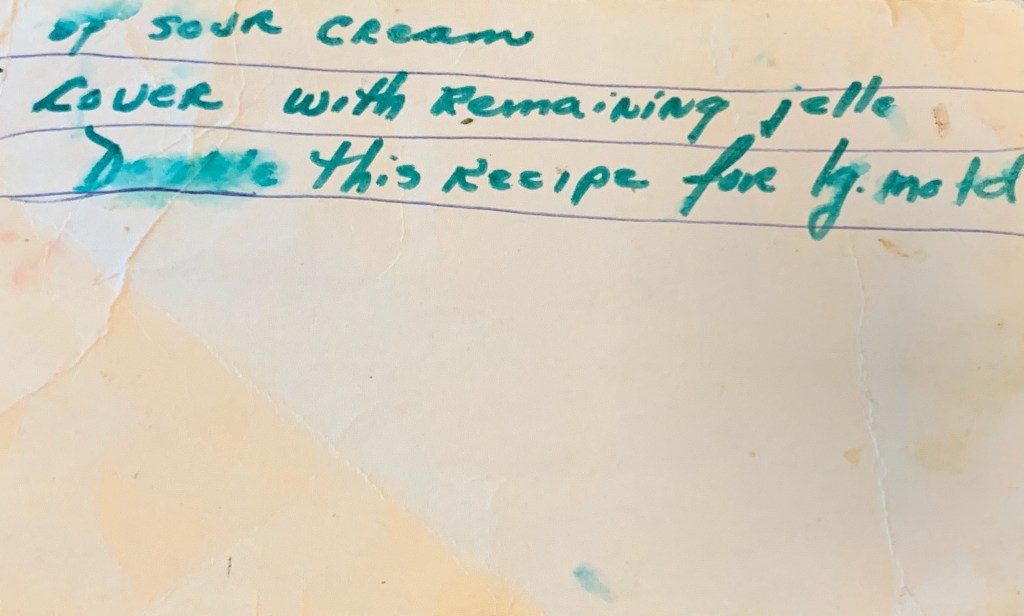 of sour cream
Cover with Remaining jello
Double this Recipe for lg. mold